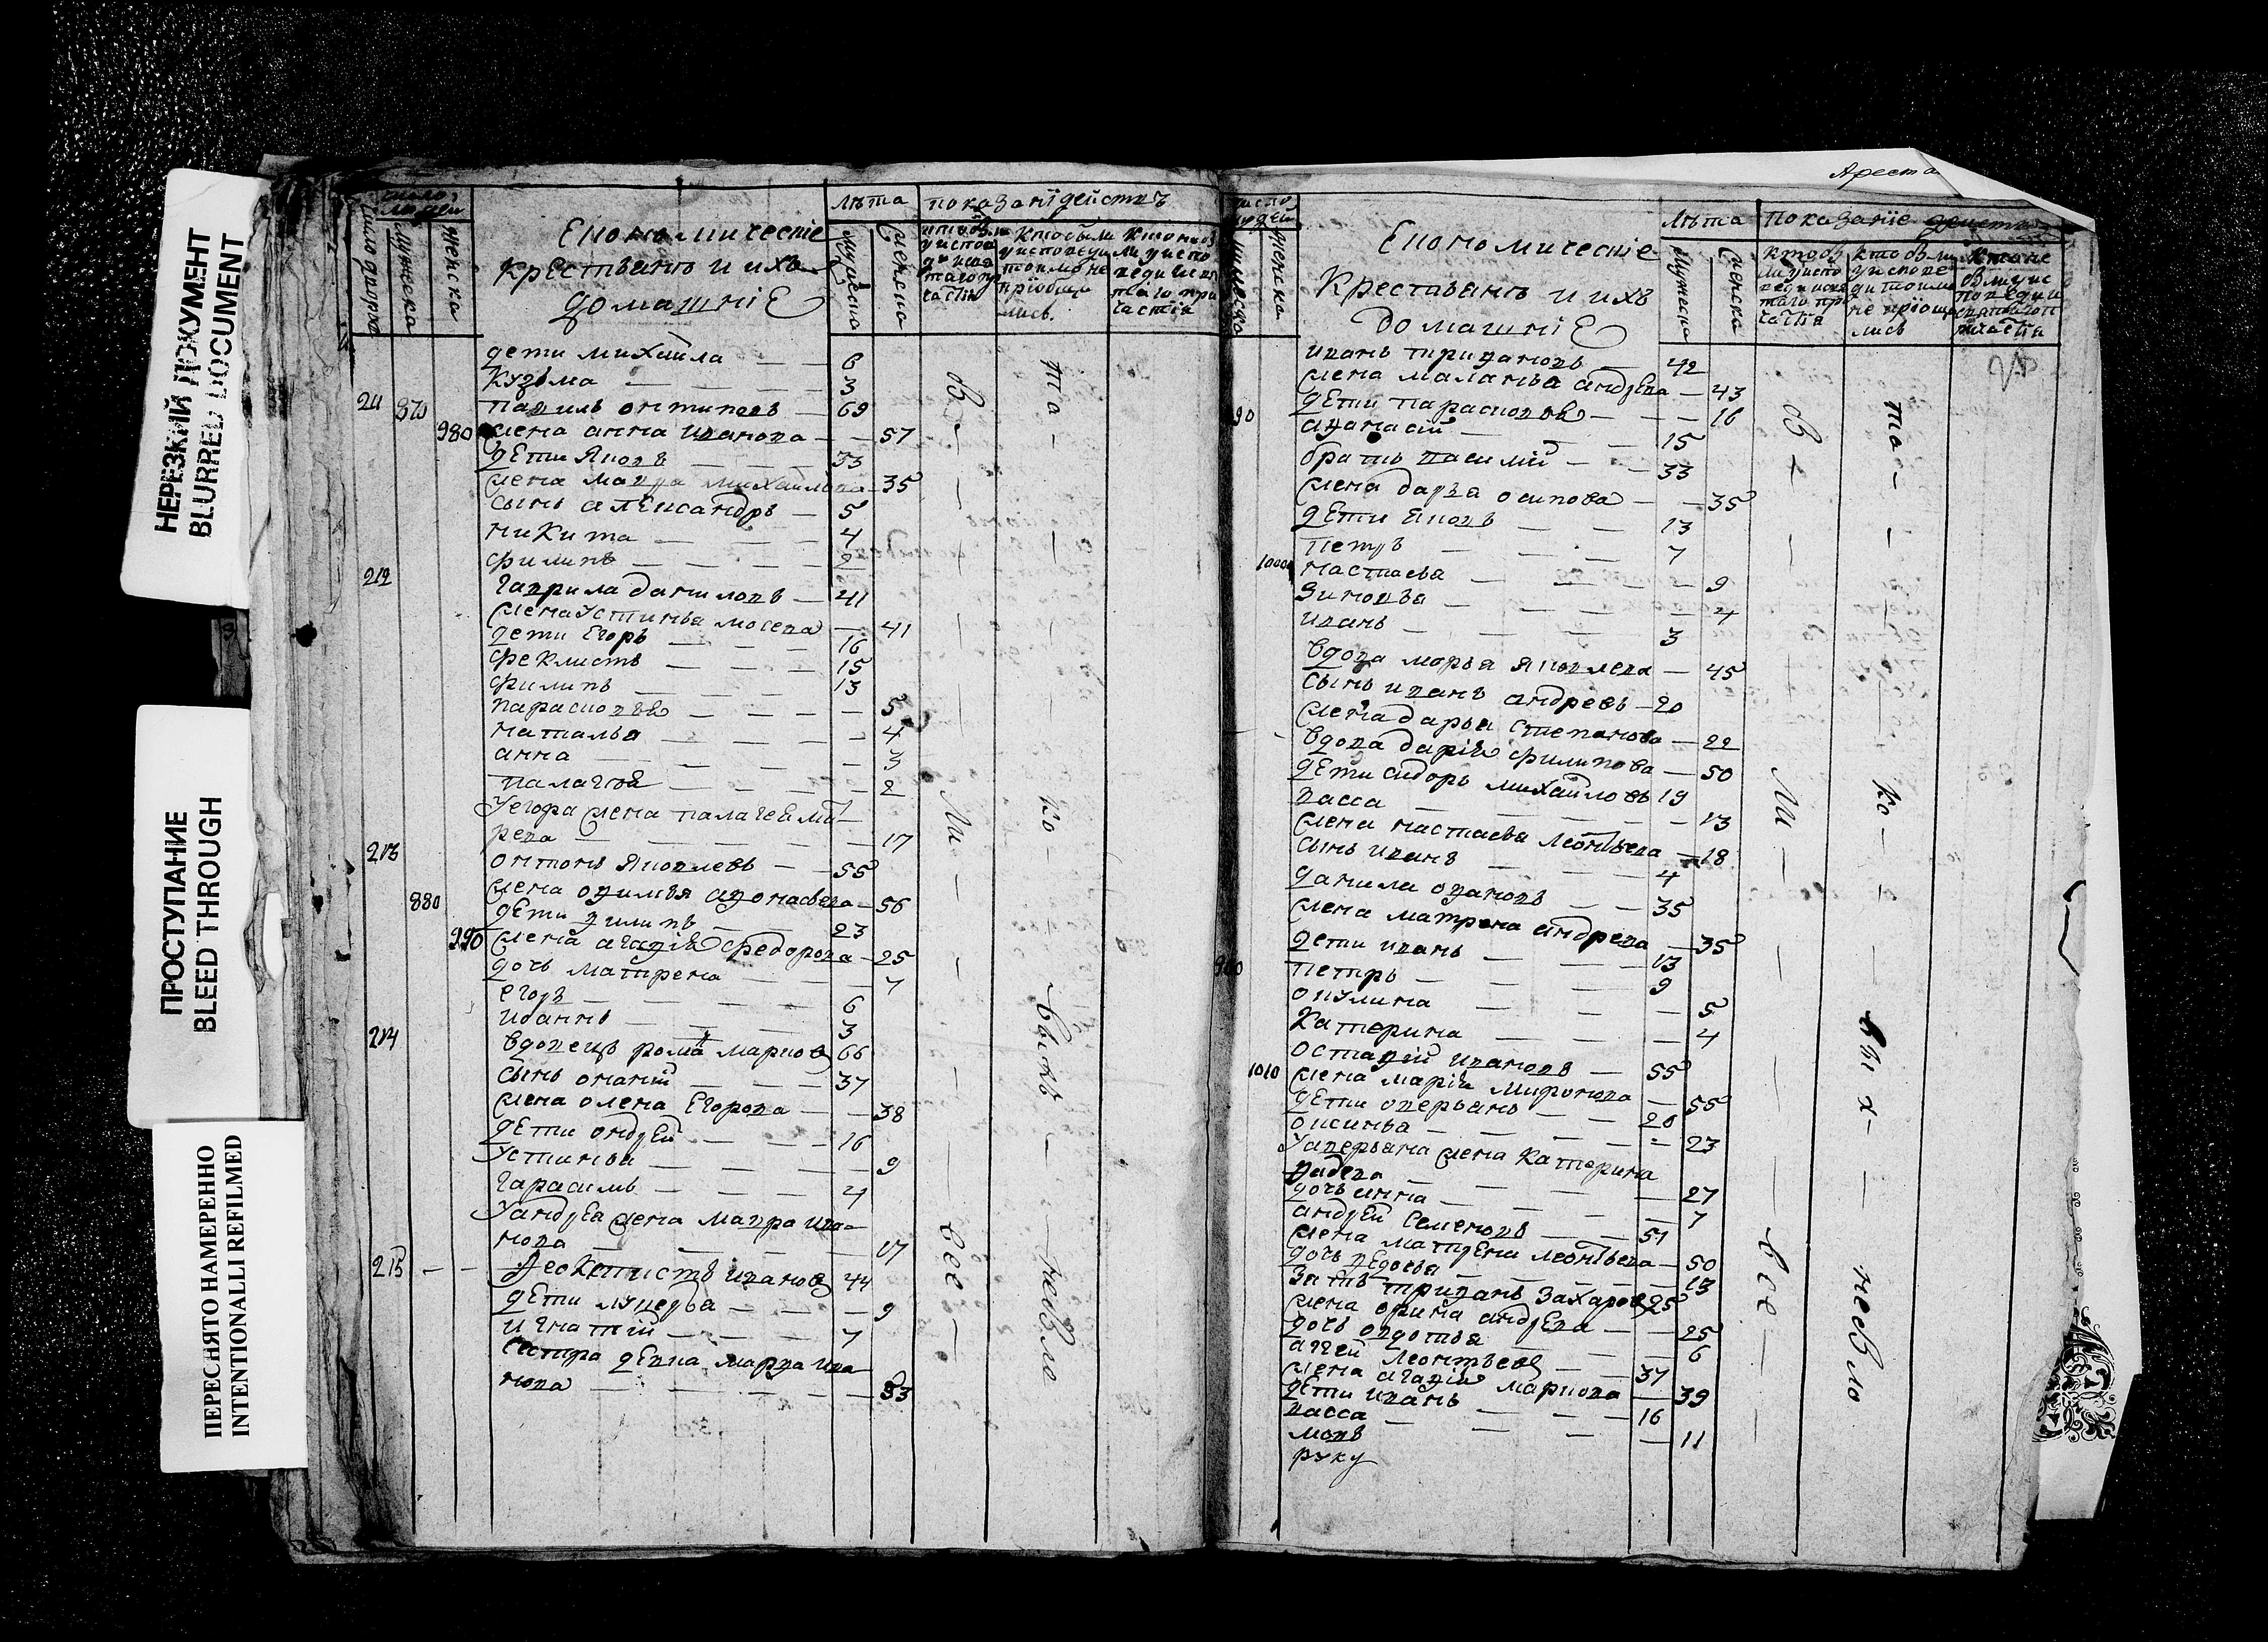 НЕРЕЗКИЙ ДОКУМЕНТ
BLURRED DOCUMENT
ПРОСТУПАНИЕ
BLEED THROUGH
ПЕРЕСНЯТО НАМЕРЕННО
INTENTIONALLI REFILMED
число людей
мужеска
женска
Економическіе
крестьянъ и ихъ
домашніе
лѣта
показаніи действъ
дети михаила 6
кузьма 3
211 870 павилъ онтиповъ 69
980 жена анна иванова 57
дети яковъ 33
жена мавра михаилова 35
сынъ александръ 5
никита 4
филипъ 2
212 гаврила даниловъ 41
жена устинья мосева 41
дети егоръ 16
феклистъ 15
филипъ 13
парасковья 5
наталья 4
анна 3
палагея 2
у егора жена палагея ми
рева 17
213 онтонъ яковлевъ 55
880 жена офимья афонасьева 56
дети филипъ 23
990 жена агафія федорова 25
дочь матрена 7
егоръ 6
иванъ 3
214 вдовецъ романъ марков 66
сынъ онаній 37
жена олена егорова 38
дети ондрей 16
устинья 9
гарасимъ 4
у андрея жена мавра ива
нова 17
215 феоктистъ иванов 44
дети лукерья 9
игнатій 7
сестра девка марфа ива
нова 33
ов та
ли ко
выхъ
все небыло
Ареста
число людей
женска
Економическіе
Крестьянъ и ихъ
домашніе
лѣта
мужеска
женска
показаніе действъ
иванъ трифановъ 42
жена маланья андрева 43
дети парасковья 16
афанасій 15
братъ василій 33
жена дарья осипова 35
дети яковъ 13
петръ 7
1000 настасья 9
зиновья 4
иванъ 3
вдова марья яковлева 45
сынъ иванъ андреевъ 20
жена дарья степанова 22
вдова дарія филипова 50
дети сидоръ михайловъ 19
васса 13
жена настасья леонтьева 18
сынъ иванъ 4
данила офановъ 35
жена матрена андрева 35
дети иванъ 13
петръ 9
окулина 5
катерина 4
остафій ивановъ 55
1010 жена марія миронова 55
дети оверьянъ 20
оксинья 23
у аверьяна жена катерина
дочь анна 7
27
андрей семеновъ 51
жена матрена леонтьева 50
дочь федосья 13
зять трифанъ захаров 25
жена орина андрева 25
дочь овдотья 6
аггей леонтьевъ 37
жена агафія маркова 39
дети иванъ 16
васса 11
мовъ
руку
ов та
ли ко
вы х
все небыло